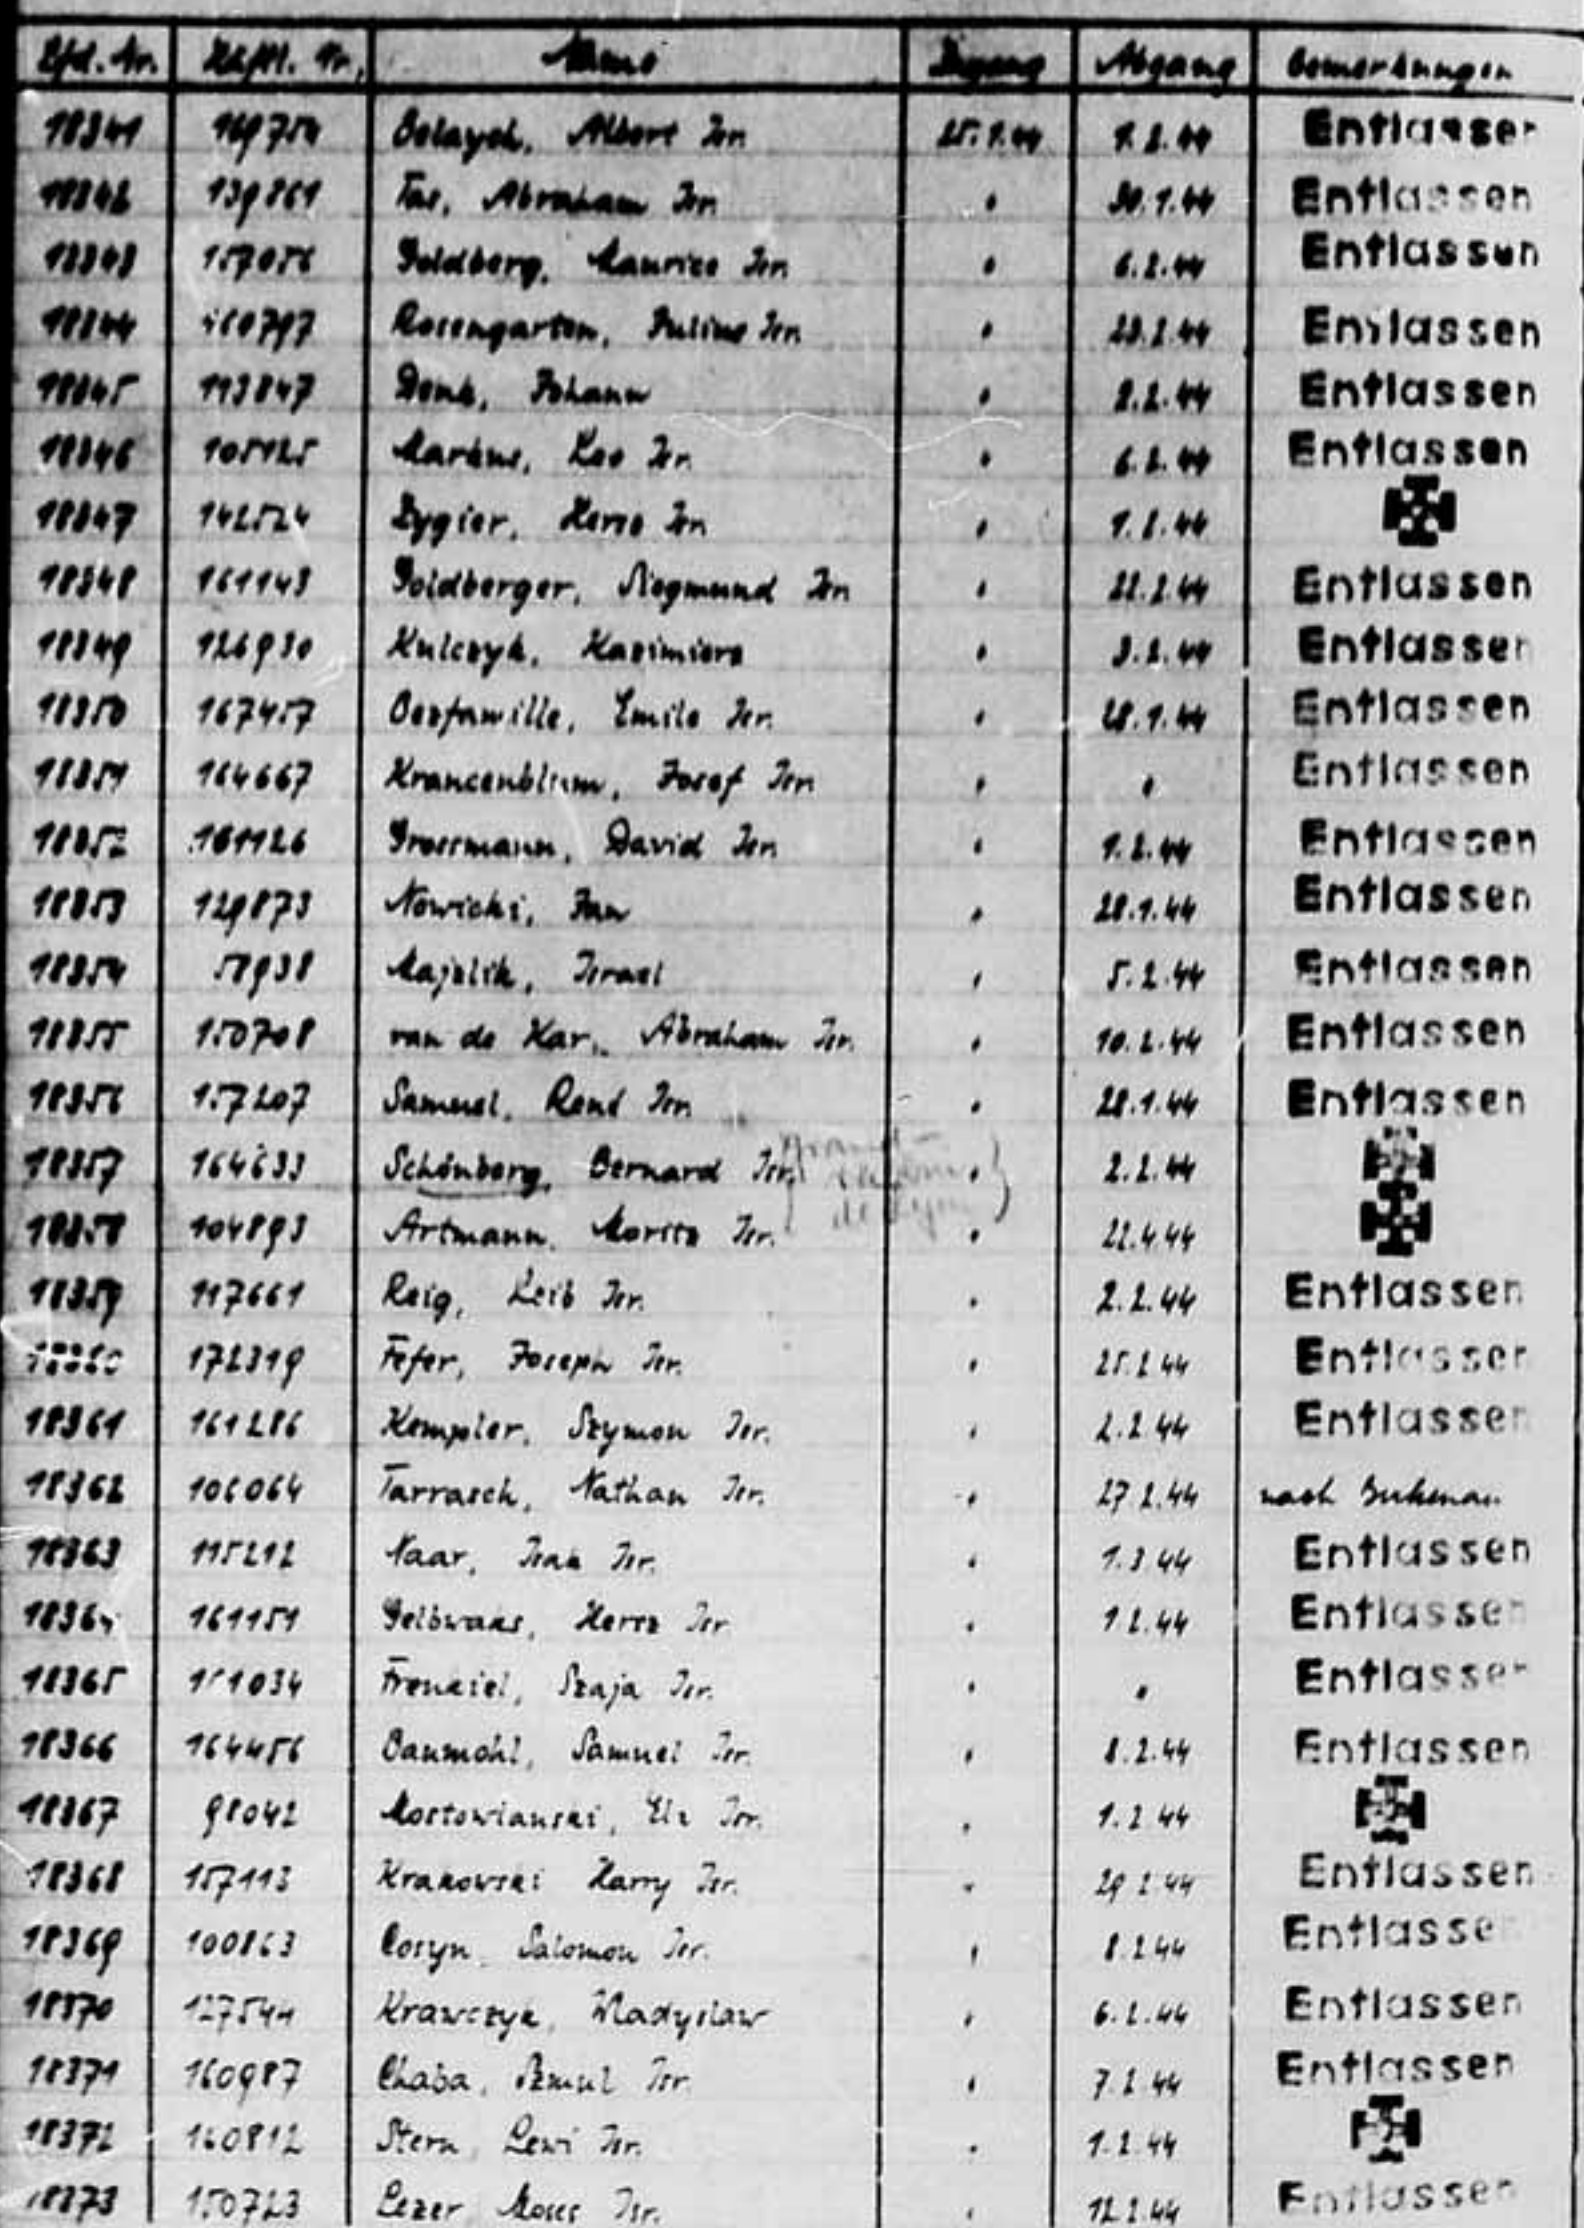 Lfd. Nr. Häftl. Nr. Name Zugang Abgang Bemerkungen
18341 169754 Belaych, Albert Isr. 25.1.44 1.2.44 Entlassen
18342 139861 Tas, Abraham Isr. " 30.1.44 Entlassen
18343 157056 Goldberg, Maurice Isr. " 6.2.44 Entlassen
18344 160797 Rosengarten, Julius Isr. " 23.2.44 Entlassen
18345 113847 Denk, Johann " 2.2.44 Entlassen
18346 105125 Markus, Leo Isr. " 6.2.44 Entlassen
18347 142524 Zygier, Hersz Isr. " 1.2.44
18348 161143 Goldberger, Siegmund Isr. " 22.2.44 Entlassen
18349 126930 Kulczyk, Kazimierz " 3.2.44 Entlassen
18350 167457 Emile Isr. " 28.1.44 Entlassen
18351 164667 Krancenblum, Josef Isr. " " Entlassen
18352 161126 Grossmann, David Isr. " 1.2.44 Entlassen
18353 129873 Nowicki, Jan " 28.1.44 Entlassen
18354 58938 Majzlik, Israel " 5.2.44 Entlassen
18355 150708 van de Kar, Abraham Isr. " 10.2.44 Entlassen
18356 157207 Samuel, René Isr. " 28.1.44 Entlassen
18357 164633 Schönberg, Bernard Isr. " 2.2.44
18358 104893 Artmann, Moritz Isr. " 22.4.44
18359 117661 Reig, Leib Isr. " 2.2.44 Entlassen
18360 172319 Fefer, Joseph Isr. " 25.2.44 Entlassen
18361 161286 Kempler, Szymon Isr. " 2.2.44 Entlassen
18362 106064 Tarrasch, Nathan Isr. " 27.2.44 nach Birkenau
18363 115212 Naar, Isak Isr. " 1.3.44 Entlassen
18364 161151 Gelbwaks, Hersz Isr. " 1.2.44 Entlassen
18365 151034 Frenkiel, Szaja Isr. " " Entlassen
18366 164456 Baumöhl, Samuel Isr. " 8.2.44 Entlassen
18367 98042 Mostowianski, Isr. " 1.2.44
18368 157113 Krakowski Harry Isr. " 29.2.44 Entlassen
18369 100863 Cosyn, Salomon Isr. " 8.2.44 Entlassen
18370 127544 Krawczyk, Wladyslaw " 6.2.44 Entlassen
18371 160987 Chaba, Szmul Isr. " 7.2.44 Entlassen
18372 160812 Stern, Lewi Isr. " 1.2.44
18373 150723 Lezer, Moses Isr. " 12.2.44 Entlassen